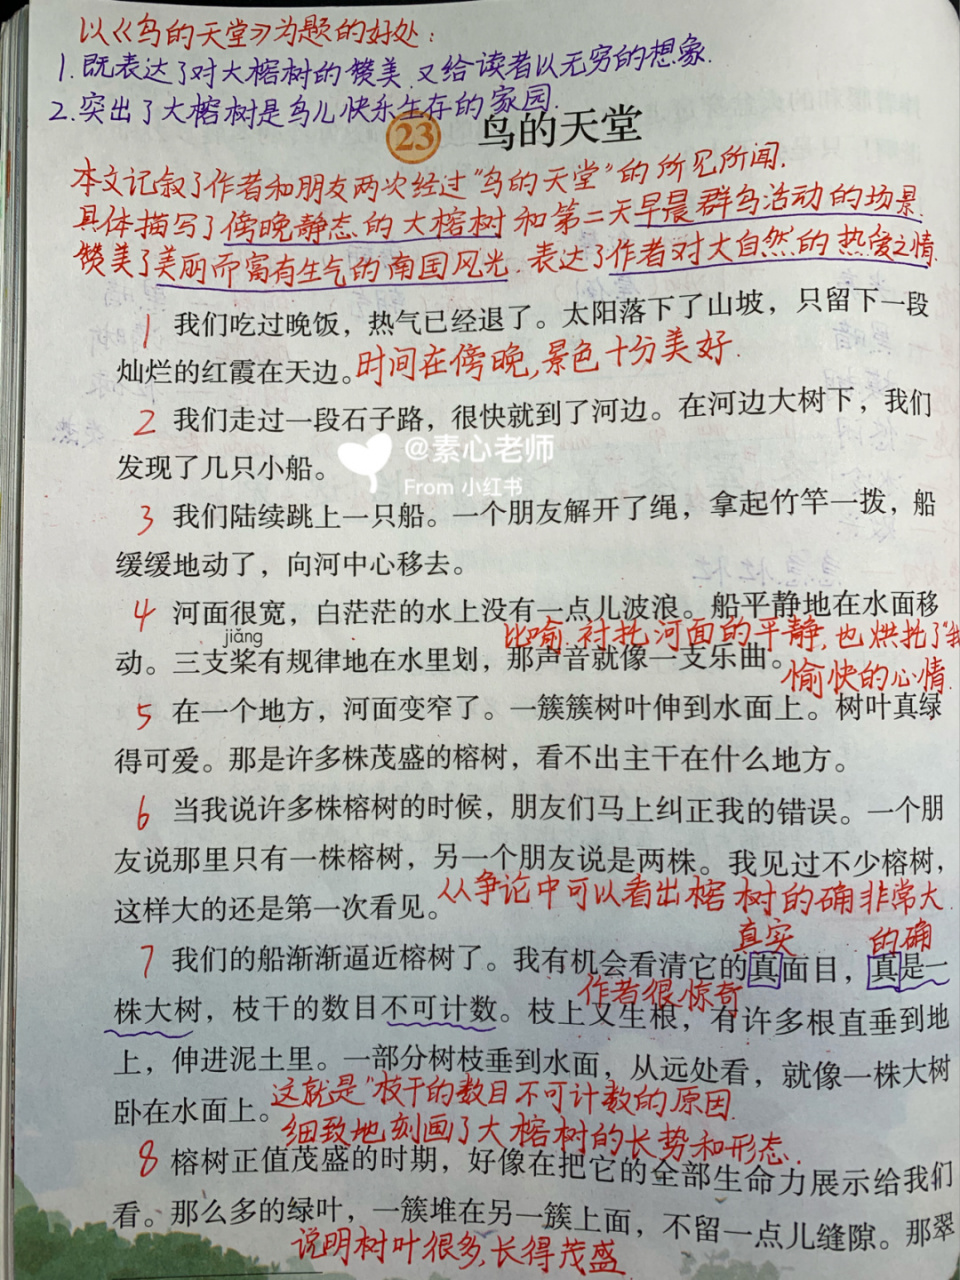 以《鸟的天堂》为题的好处:
1.既表达了对大榕树的赞美,又给读者以无穷的想象.
2.突出了大榕树是鸟儿快乐生存的家园.
23 鸟的天堂
本文记叙了作者和朋友两次经过"鸟的天堂"的所见所闻.
具体描写了傍晚静态的大榕树和第二天早晨群鸟活动的场景.
赞美了美丽而富有生气的南国风光.表达了作者对大自然的热爱之情.
1 我们吃过晚饭，热气已经退了。太阳落下了山坡，只留下一段
灿烂的红霞在天边。时间在傍晚,景色十分美好.
2 我们走过一段石子路，很快就到了河边。在河边大树下，我们
发现了几只小船。
@素心老师
From 小红书
3 我们陆续跳上一只船。一个朋友解开了绳，拿起竹竿一拨，船
缓缓地动了，向河中心移去。
4 河面很宽，白茫茫的水上没有一点儿波浪。船平静地在水面移
比喻,衬托河面的平静,也烘托了"我
jiǎng
动。三支桨有规律地在水里划，那声音就像一支乐曲。
愉快的心情.
5 在一个地方，河面变窄了。一簇簇树叶伸到水面上。树叶真绿
得可爱。那是许多株茂盛的榕树，看不出主干在什么地方。
6 当我说许多株榕树的时候，朋友们马上纠正我的错误。一个朋
友说那里只有一株榕树，另一个朋友说是两株。我见过不少榕树，
这样大的还是第一次看见。从争论中可以看出榕树的确非常大
真实 的确
7 我们的船渐渐逼近榕树了。我有机会看清它的真面目，真是一
作者很惊奇
株大树，枝干的数目不可计数。枝上又生根，有许多根直垂到地
上，伸进泥土里。一部分树枝垂到水面，从远处看，就像一株大树
卧在水面上。这就是"枝干的数目不可计数的原因.
细致地刻画了大榕树的长势和形态.
8 榕树正值茂盛的时期，好像在把它的全部生命力展示给我们
看。那么多的绿叶，一簇堆在另一簇上面，不留一点儿缝隙。那翠
说明树叶很多,长得茂盛